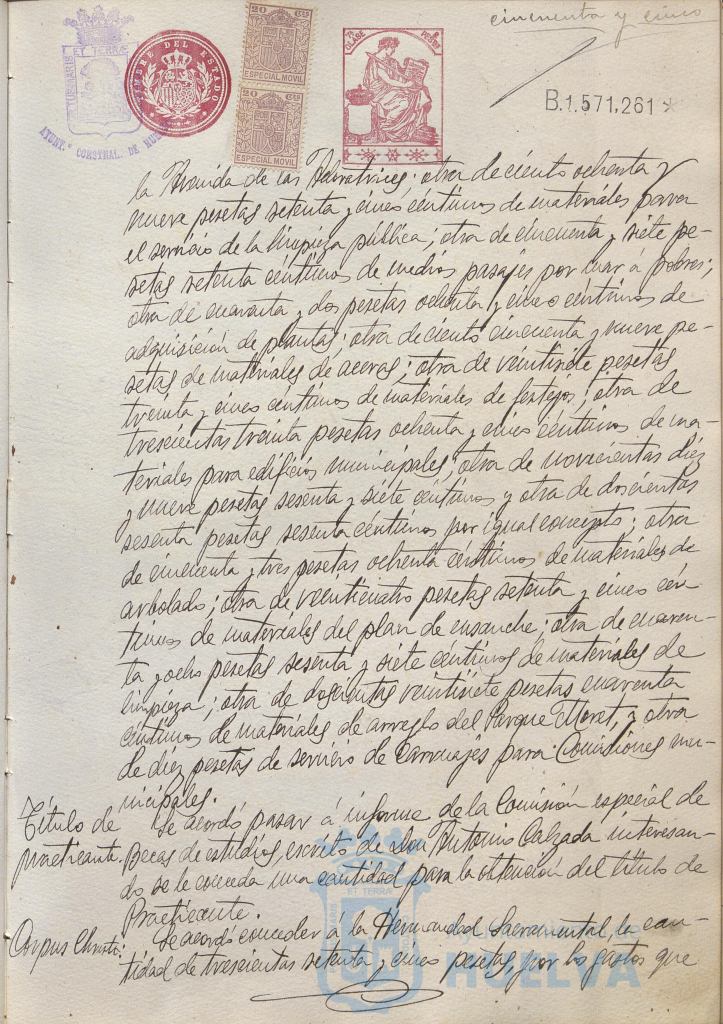 cincuenta y cinco
PORTUS MARIS ET TERRÆ CUSTODIA
AYUNT.º CONSTNAL. DE HUELVA
TIMBRE DEL ESTADO
20 Cts
ESPECIAL MOVIL
20 Cts
ESPECIAL MOVIL
CLASE
PESETAS
B.1.571,261 *
la Avenida de las Adoratrices; otra de ciento ochenta y
nueve pesetas setenta y cinco céntimos de materiales para
el servicio de la limpieza pública; otra de cincuenta y siete pe-
setas setenta céntimos de medios pasajes por mar á pobres;
otra de cuarenta y dos pesetas ochenta y cinco céntimos de
adquisición de plantas; otra de ciento cincuenta y nueve pe-
setas de materiales de aceras; otra de veintisiete pesetas
treinta y cinco céntimos de materiales de festejos; otra de
trescientas treinta pesetas ochenta y cinco céntimos de ma-
teriales para edificios municipales; otra de novecientas diez
y nueve pesetas sesenta y siete céntimos y otra de doscientas
sesenta pesetas sesenta céntimos por igual concepto; otra
de cincuenta y tres pesetas ochenta céntimos de materiales de
arbolado; otra de veinticuatro pesetas setenta y cinco cén-
timos de materiales del plan de ensanche; otra de cuaren-
ta y ocho pesetas sesenta y siete céntimos de materiales de
limpieza; otra de doscientas veintisiete pesetas cuarenta
céntimos de materiales de arreglo del Parque Moret, y otra
de diez pesetas de servicio de carruajes para Comisiones mu-
nicipales.
Título de
practicante.
Se acordó pasar á informe de la Comisión especial de
Becas de estudios, escrito de Don Antonio Calzada interesan-
do se le conceda una cantidad para la obtención del título de
Practicante.
Corpus Christi.
Se acordó conceder á la Hermandad Sacramental la can-
tidad de trescientas setenta y cinco pesetas, por los gastos que
HUELVA